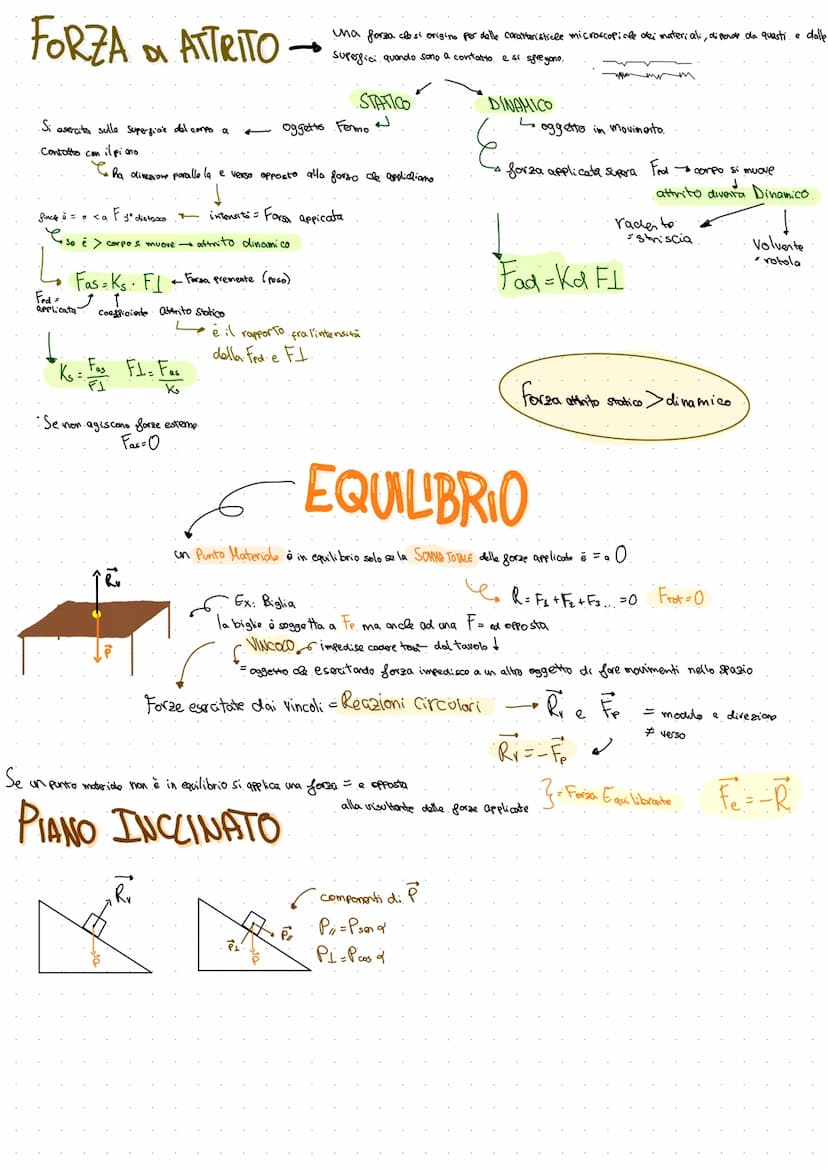 FORZA di ATTRITO → una forza che si origina per delle caratteristiche microscopiche dei materiali, dipende da questi e dalle
superfici quando sono a contatto e si sfregano.
STATICO
DINAMICO
Si esercita sulla superficie del corpo a ← oggetto Fermo
contatto con il piano
↳ oggetto in movimento.
Ha direzione parallela e verso opposto alla forza che applichiamo
forza applicata supera → corpo si muove
attrito diventa Dinamico
finché è = o < a F di distacco ← intensità = Forza applicata
radente
= striscia
Volvente
= rotola
se è > corpo si muove → attrito dinamico
Fas = Ks · F⊥ ← Forza premente (peso)
Fad = Kd F⊥
applicata
coefficiente attrito statico
è il rapporto fra l'intensità
della e F⊥
Ks = Fas/F⊥ F⊥ = Fas/Ks
Forza attrito statico > dinamico
· Se non agiscono forze esterne
Fas = 0
EQUILIBRIO
un Punto Materiale è in equilibrio solo se la SOMMA TOTALE delle forze applicate è = a 0
R = F1 + F2 + F3 ... = 0 Ftot = 0
Rv
P
Ex: Biglia
la biglia è soggetta a Fp ma anche ad una F = ed opposta
VINCOLO impedisce cadere dal tavolo ↓
= oggetto che esercitando forza impedisce a un altro oggetto di fare movimenti nello spazio
Forze esercitate dai vincoli = Reazioni Circolari → Rv e Fp = modulo e direzione
≠ verso
Rv = -Fp
Se un punto materiale non è in equilibrio si applica una forza = e opposta
alla risultante delle forze applicate } = Forza Equilibrante Fe = -R
PIANO INCLINATO
Rv
P
P⊥
P//
P
componenti di P
P// = P sen α
P⊥ = P cos α